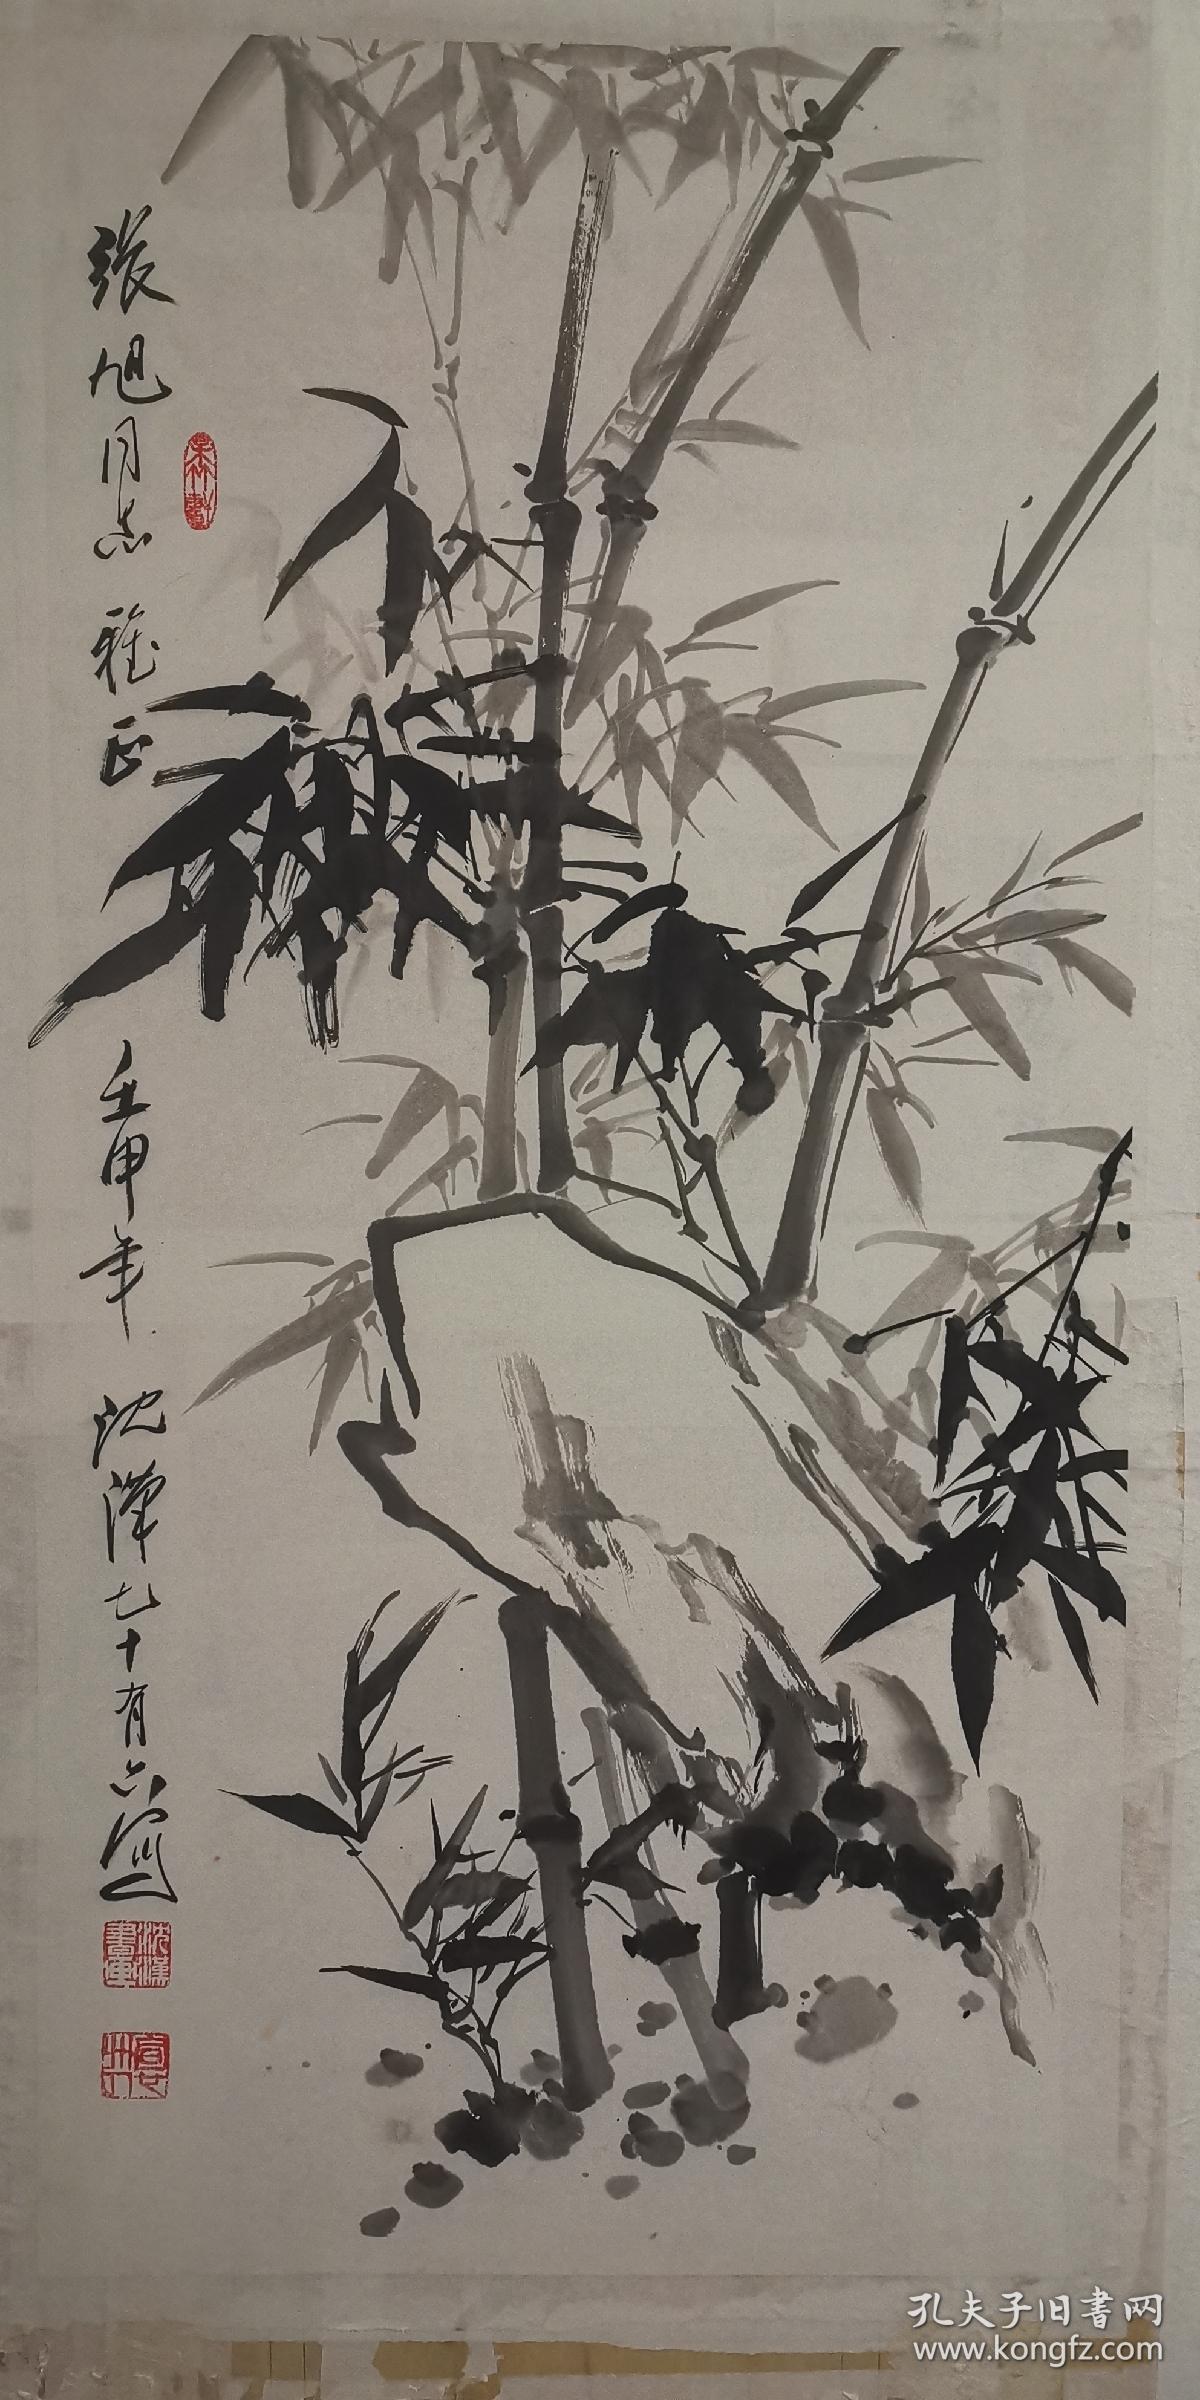 張旭同志雅正
壬申年
沈漢七十有六寫
沈漢書画
孔夫子旧书网
www.kongfz.com